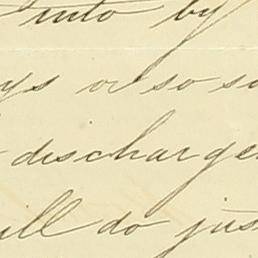 into by
ys or so so
discharge
ill do jus